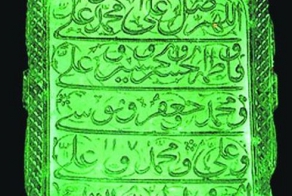 اللهم صل على محمد و علي
و فاطمة و الحسن و الحسين و علي
و محمد و جعفر و موسى
و علي و محمد و علي